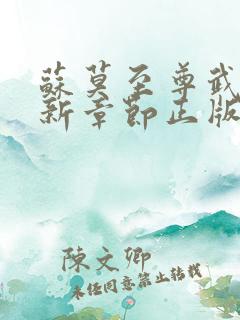 蘇莫至尊武
新章節正版
陳文卿
未经同意禁止转载